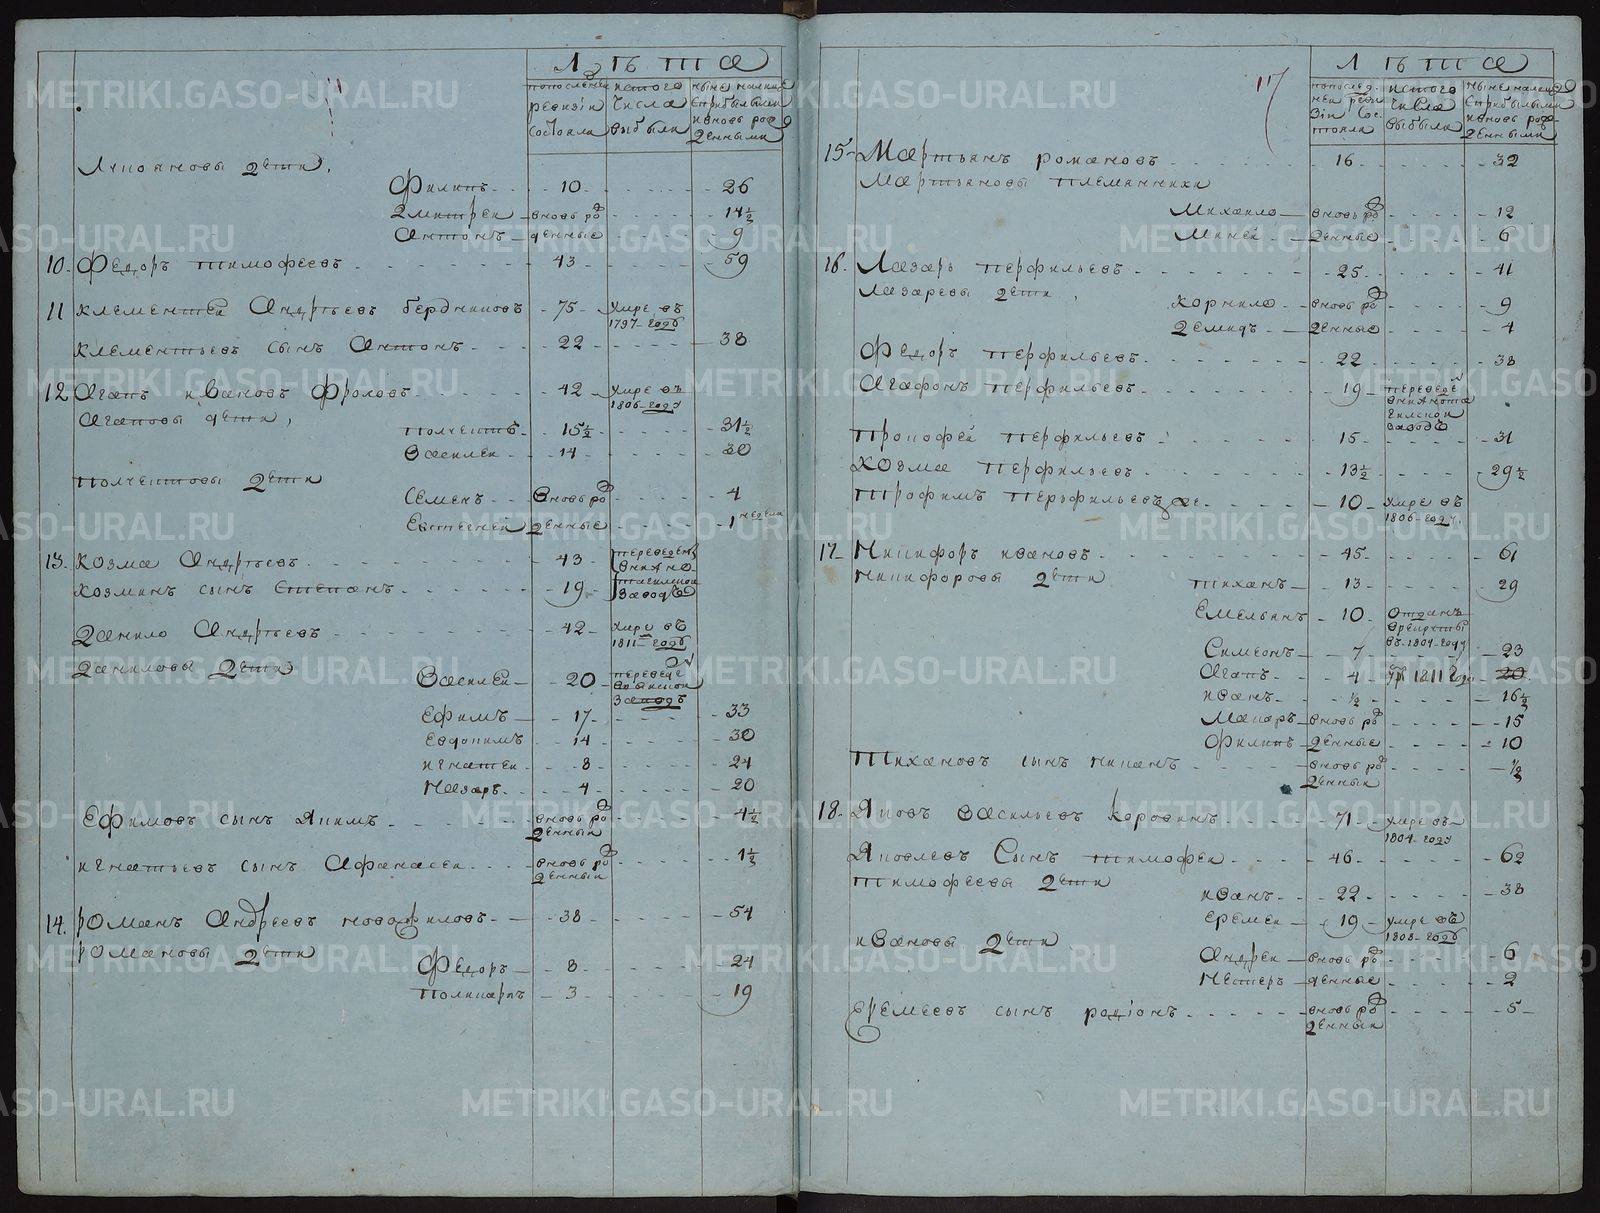 Лѣта
по последней ревизiи состояло
ис того числа выбыли
ныне налицо с прибылыми и вновь рожденными
Лупояновы дети,
Филипъ 10 26
Дмитреи вновь ро 14½
Антонъ жденные 9
10. Федоръ тимофеевъ 43 59
11 клементей Андрѣевъ бердниковъ 75 умре въ 1797 годѣ
клементьевъ сынъ Антонъ 22 38
12 Агапъ ивановъ фроловъ 42 умре въ 1806 году
Агаповы дети,
31½
15½
Василеи 14 30
дети
Семенъ вновь ро 4
Евстегнеи жденные 1 неделя
13. козма Андрѣевъ 43 переведен
козминъ сынъ Степанъ 19 заводъ
Данило Андрѣевъ 42 умре въ 1811 годѣ
Даниловы дети
Василеи 20 переведе
заводъ
Ефимъ 17 33
Евдокимъ 14 30
игнатеи 8 24
Назаръ 4 20
Ефимовъ сынъ Якимъ вновь рожденныи 4½
игнатьевъ сынъ Афанасеи вновь рожденныи 1½
14. романъ Андреевъ новофиловъ 38 54
романовы дети
Федоръ 8 24
поликарпъ 3 19
17
Лѣта
по последней ревизiи состояли
ис того числа выбыли
ныне налицо с прибылыми и вновь рожденными
15 Мартьянъ романовъ 16 32
Мартьяновы племянники
Михаило вновь ро 12
Минеи жденные 6
16. Лазарь перфильевъ 25 41
Лазаревы дети,
корнило вновь ро 9
Демидъ жденные 4
Федоръ перфильевъ 22 38
Агафонъ перфильевъ 19 переведе
заводъ
Прокофеи перфильевъ 15 31
козма перфильевъ 13½ 29½
Трофимъ перфильевъ же 10 умре въ 1806 году
17 Никифоръ ивановъ 45 61
Никифоровы дети
Тиханъ 13 29
Емельянъ 10 Отданъ врекруты въ 1804 году
Симеонъ 7 23
Агапъ 4 ум 1811 годе 20
иванъ ½ 16½
Макаръ вновь ро 15
Филипъ жденные 10
Тихановъ сынъ вновь рожденныи ½
18. Яковъ васильевъ коровинъ 71 умре въ 1804 году
Яковлевъ Сынъ тимофеи 46 62
Тимофеевы дети
иванъ 22 38
еремеи 19 умре въ 1808 годѣ
ивановы дети
Андреи вновь ро 6
Нестеръ жденные 2
еремеевъ сынъ родiонъ вновь рожденныи 5
METRIKI.GASO-URAL.RU